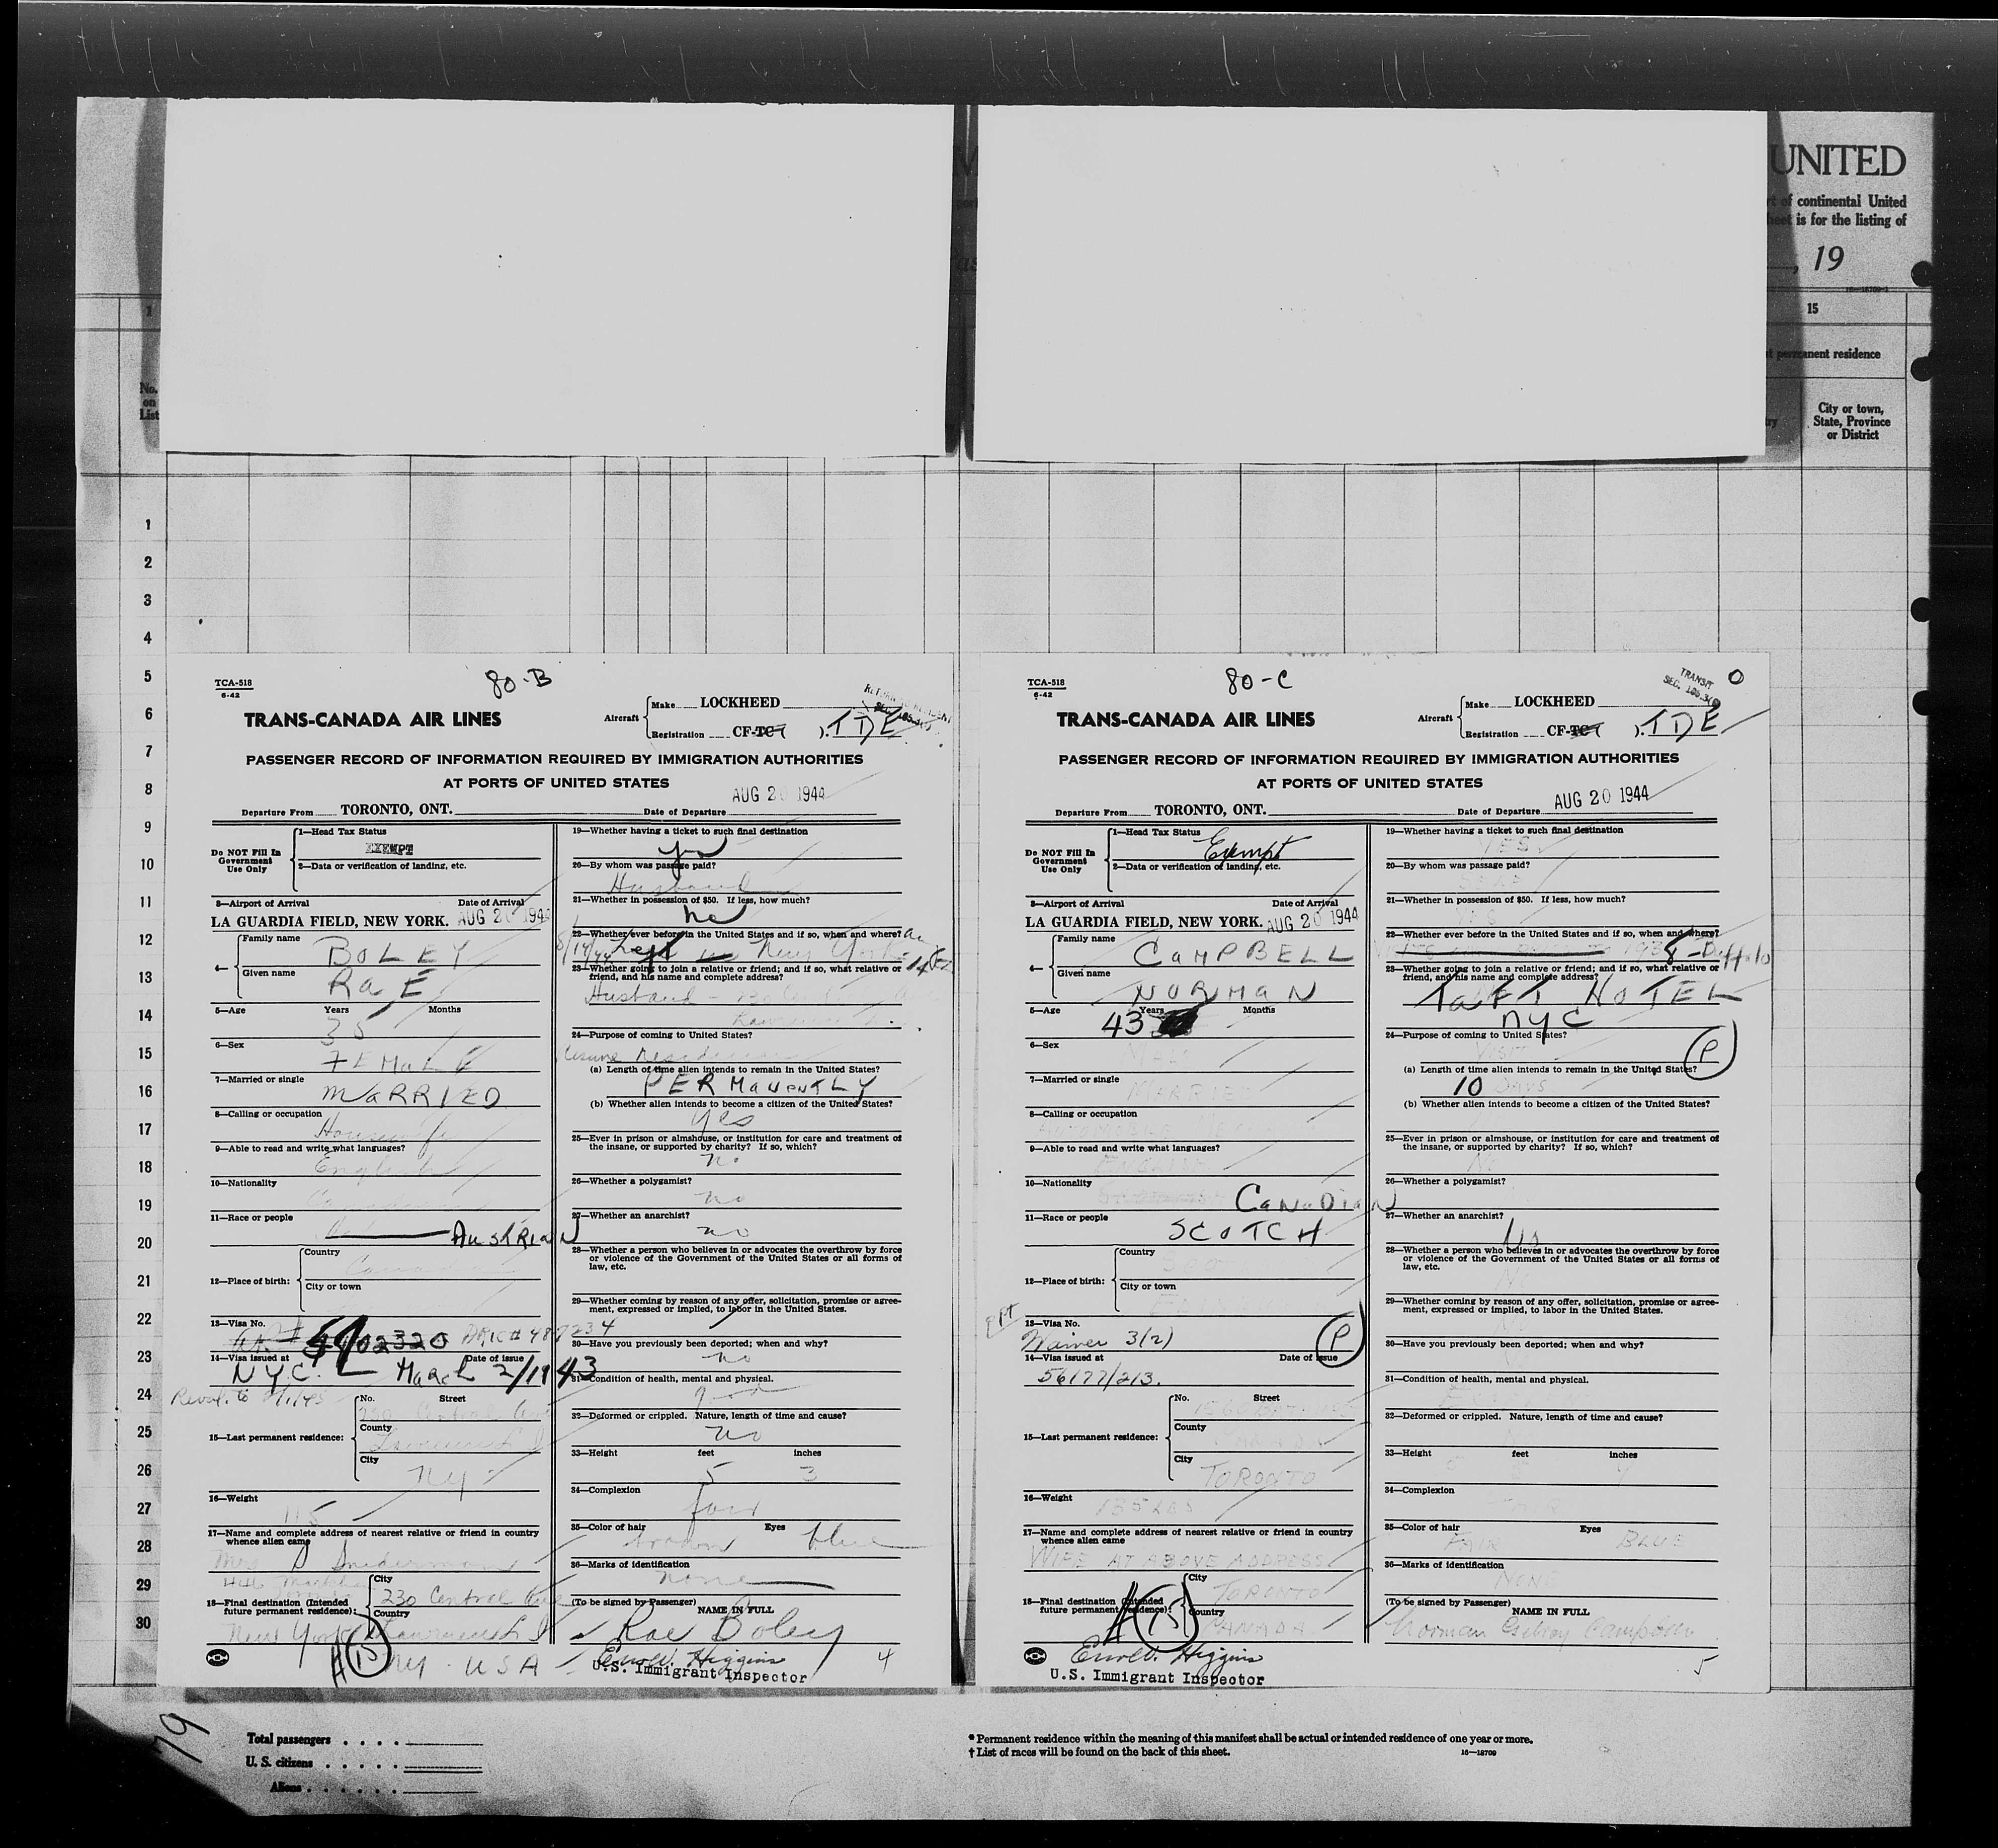 UNITED
of continental United
is for the listing of
, 19
1
15
permanent residence
No.
on
List
City or town,
State, Province
or District
1
2
3
4
5
6
7
8
9
10
11
12
13
14
15
16
17
18
19
20
21
22
23
24
25
26
27
28
29
30
TCA-518
6-42
80-B
TRANS-CANADA AIR LINES
Aircraft
Make LOCKHEED
Registration CF-TC ). TDE
PASSENGER RECORD OF INFORMATION REQUIRED BY IMMIGRATION AUTHORITIES
AT PORTS OF UNITED STATES
AUG 20 1944
Departure From TORONTO, ONT. Date of Departure
Do NOT Fill In
Government
Use Only
1—Head Tax Status
EXEMPT
2—Data or verification of landing, etc.
3—Airport of Arrival Date of Arrival
LA GUARDIA FIELD, NEW YORK. AUG 20 1944
4—
Family name
BOLEY
Given name
RaE
5—Age Years Months
35
6—Sex
FEMaLE
7—Married or single
MaRRIED
8—Calling or occupation
Housewife
9—Able to read and write what languages?
English
10—Nationality
11—Race or people
AusTRIaN
12—Place of birth:
Country
City or town
13—Visa No.
02320
14—Visa issued at Date of issue
NYC. MaRch 2/1943
15—Last permanent residence:
No. Street
230 Central Ave
County
City
NY
16—Weight
115
17—Name and complete address of nearest relative or friend in country
whence alien came
Mrs
18—Final destination (Intended
future permanent residence):
City
230 Central Ave
Country
New York
NY. USA
19—Whether having a ticket to such final destination
yes
20—By whom was passage paid?
Husband
21—Whether in possession of $50. If less, how much?
no
22—Whether ever before in the United States and if so, when and where?
8/14/44 Left New York
23—Whether going to join a relative or friend; and if so, what relative or
friend, and his name and complete address?
Husband
24—Purpose of coming to United States?
(a) Length of time alien intends to remain in the United States?
PERMaNENTLY
(b) Whether alien intends to become a citizen of the United States?
yes
25—Ever in prison or almshouse, or institution for care and treatment of
the insane, or supported by charity? If so, which?
no
26—Whether a polygamist?
no
27—Whether an anarchist?
no
28—Whether a person who believes in or advocates the overthrow by force
or violence of the Government of the United States or all forms of
law, etc.
29—Whether coming by reason of any offer, solicitation, promise or agree-
ment, expressed or implied, to labor in the United States.
30—Have you previously been deported; when and why?
no
31—Condition of health, mental and physical.
good
32—Deformed or crippled. Nature, length of time and cause?
no
33—Height feet inches
5 3
34—Complexion
fair
35—Color of hair Eyes
brown blue
36—Marks of identification
none
(To be signed by Passenger)
NAME IN FULL
Rae Boley
Higgins
U.S. Immigrant Inspector
4
TCA-518
6-42
80-C
TRANSIT
0
TRANS-CANADA AIR LINES
Aircraft
Make LOCKHEED
Registration CF-TC ). TDE
PASSENGER RECORD OF INFORMATION REQUIRED BY IMMIGRATION AUTHORITIES
AT PORTS OF UNITED STATES
AUG 20 1944
Departure From TORONTO, ONT. Date of Departure
Do NOT Fill In
Government
Use Only
1—Head Tax Status
Exempt
2—Data or verification of landing, etc.
3—Airport of Arrival Date of Arrival
LA GUARDIA FIELD, NEW YORK. AUG 20 1944
4—
Family name
CaMPBELL
Given name
NORMaN
5—Age Years Months
43
6—Sex
MALE
7—Married or single
MARRIED
8—Calling or occupation
9—Able to read and write what languages?
ENGLISH
10—Nationality
CaNaDIaN
11—Race or people
SCOTCH
12—Place of birth:
Country
City or town
13—Visa No.
Waiver 3(2)
P
14—Visa issued at Date of issue
56177/213.
15—Last permanent residence:
No. Street
County
CANADA
City
TORONTO
16—Weight
135 LBS
17—Name and complete address of nearest relative or friend in country
whence alien came
WIFE AT ABOVE ADDRESS
18—Final destination (Intended
future permanent residence):
City
TORONTO
Country
CANADA
Higgins
U.S. Immigrant Inspector
19—Whether having a ticket to such final destination
YES
20—By whom was passage paid?
SELF
21—Whether in possession of $50. If less, how much?
YES
22—Whether ever before in the United States and if so, when and where?
1938 - Buffalo
23—Whether going to join a relative or friend; and if so, what relative or
friend, and his name and complete address?
TaFT HOTEL
NYC
24—Purpose of coming to United States?
VISIT
P
(a) Length of time alien intends to remain in the United States?
10 DAYS
(b) Whether alien intends to become a citizen of the United States?
25—Ever in prison or almshouse, or institution for care and treatment of
the insane, or supported by charity? If so, which?
NO
26—Whether a polygamist?
27—Whether an anarchist?
No
28—Whether a person who believes in or advocates the overthrow by force
or violence of the Government of the United States or all forms of
law, etc.
29—Whether coming by reason of any offer, solicitation, promise or agree-
ment, expressed or implied, to labor in the United States.
30—Have you previously been deported; when and why?
31—Condition of health, mental and physical.
32—Deformed or crippled. Nature, length of time and cause?
33—Height feet inches
34—Complexion
35—Color of hair Eyes
FAIR BLUE
36—Marks of identification
NONE
(To be signed by Passenger)
NAME IN FULL
Norman Gilroy Campbell
5
79
Total passengers
U. S. citizens
Aliens
* Permanent residence within the meaning of this manifest shall be actual or intended residence of one year or more.
† List of races will be found on the back of this sheet.
16—18709